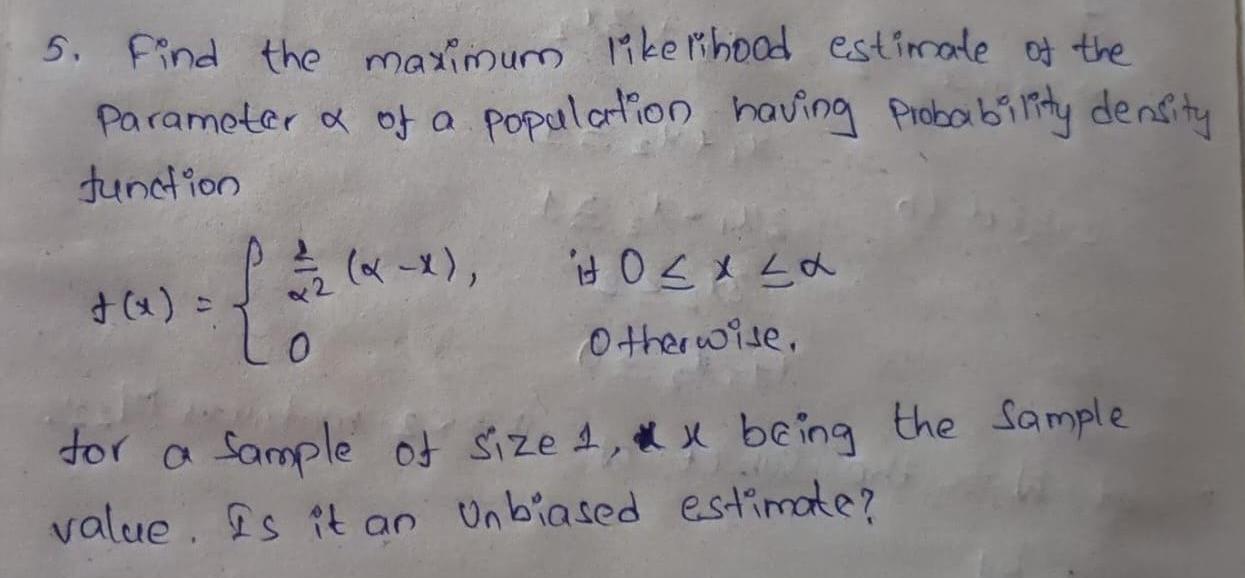 5. Find the maximum likelihood estimate of the
Parameter α of a population having Probability density
function
f(x) = { 2/α² (α-x), if 0 ≤ x ≤ α
0 Otherwise.
for a Sample of size 1, x being the Sample
value. Is it an Unbiased estimate?